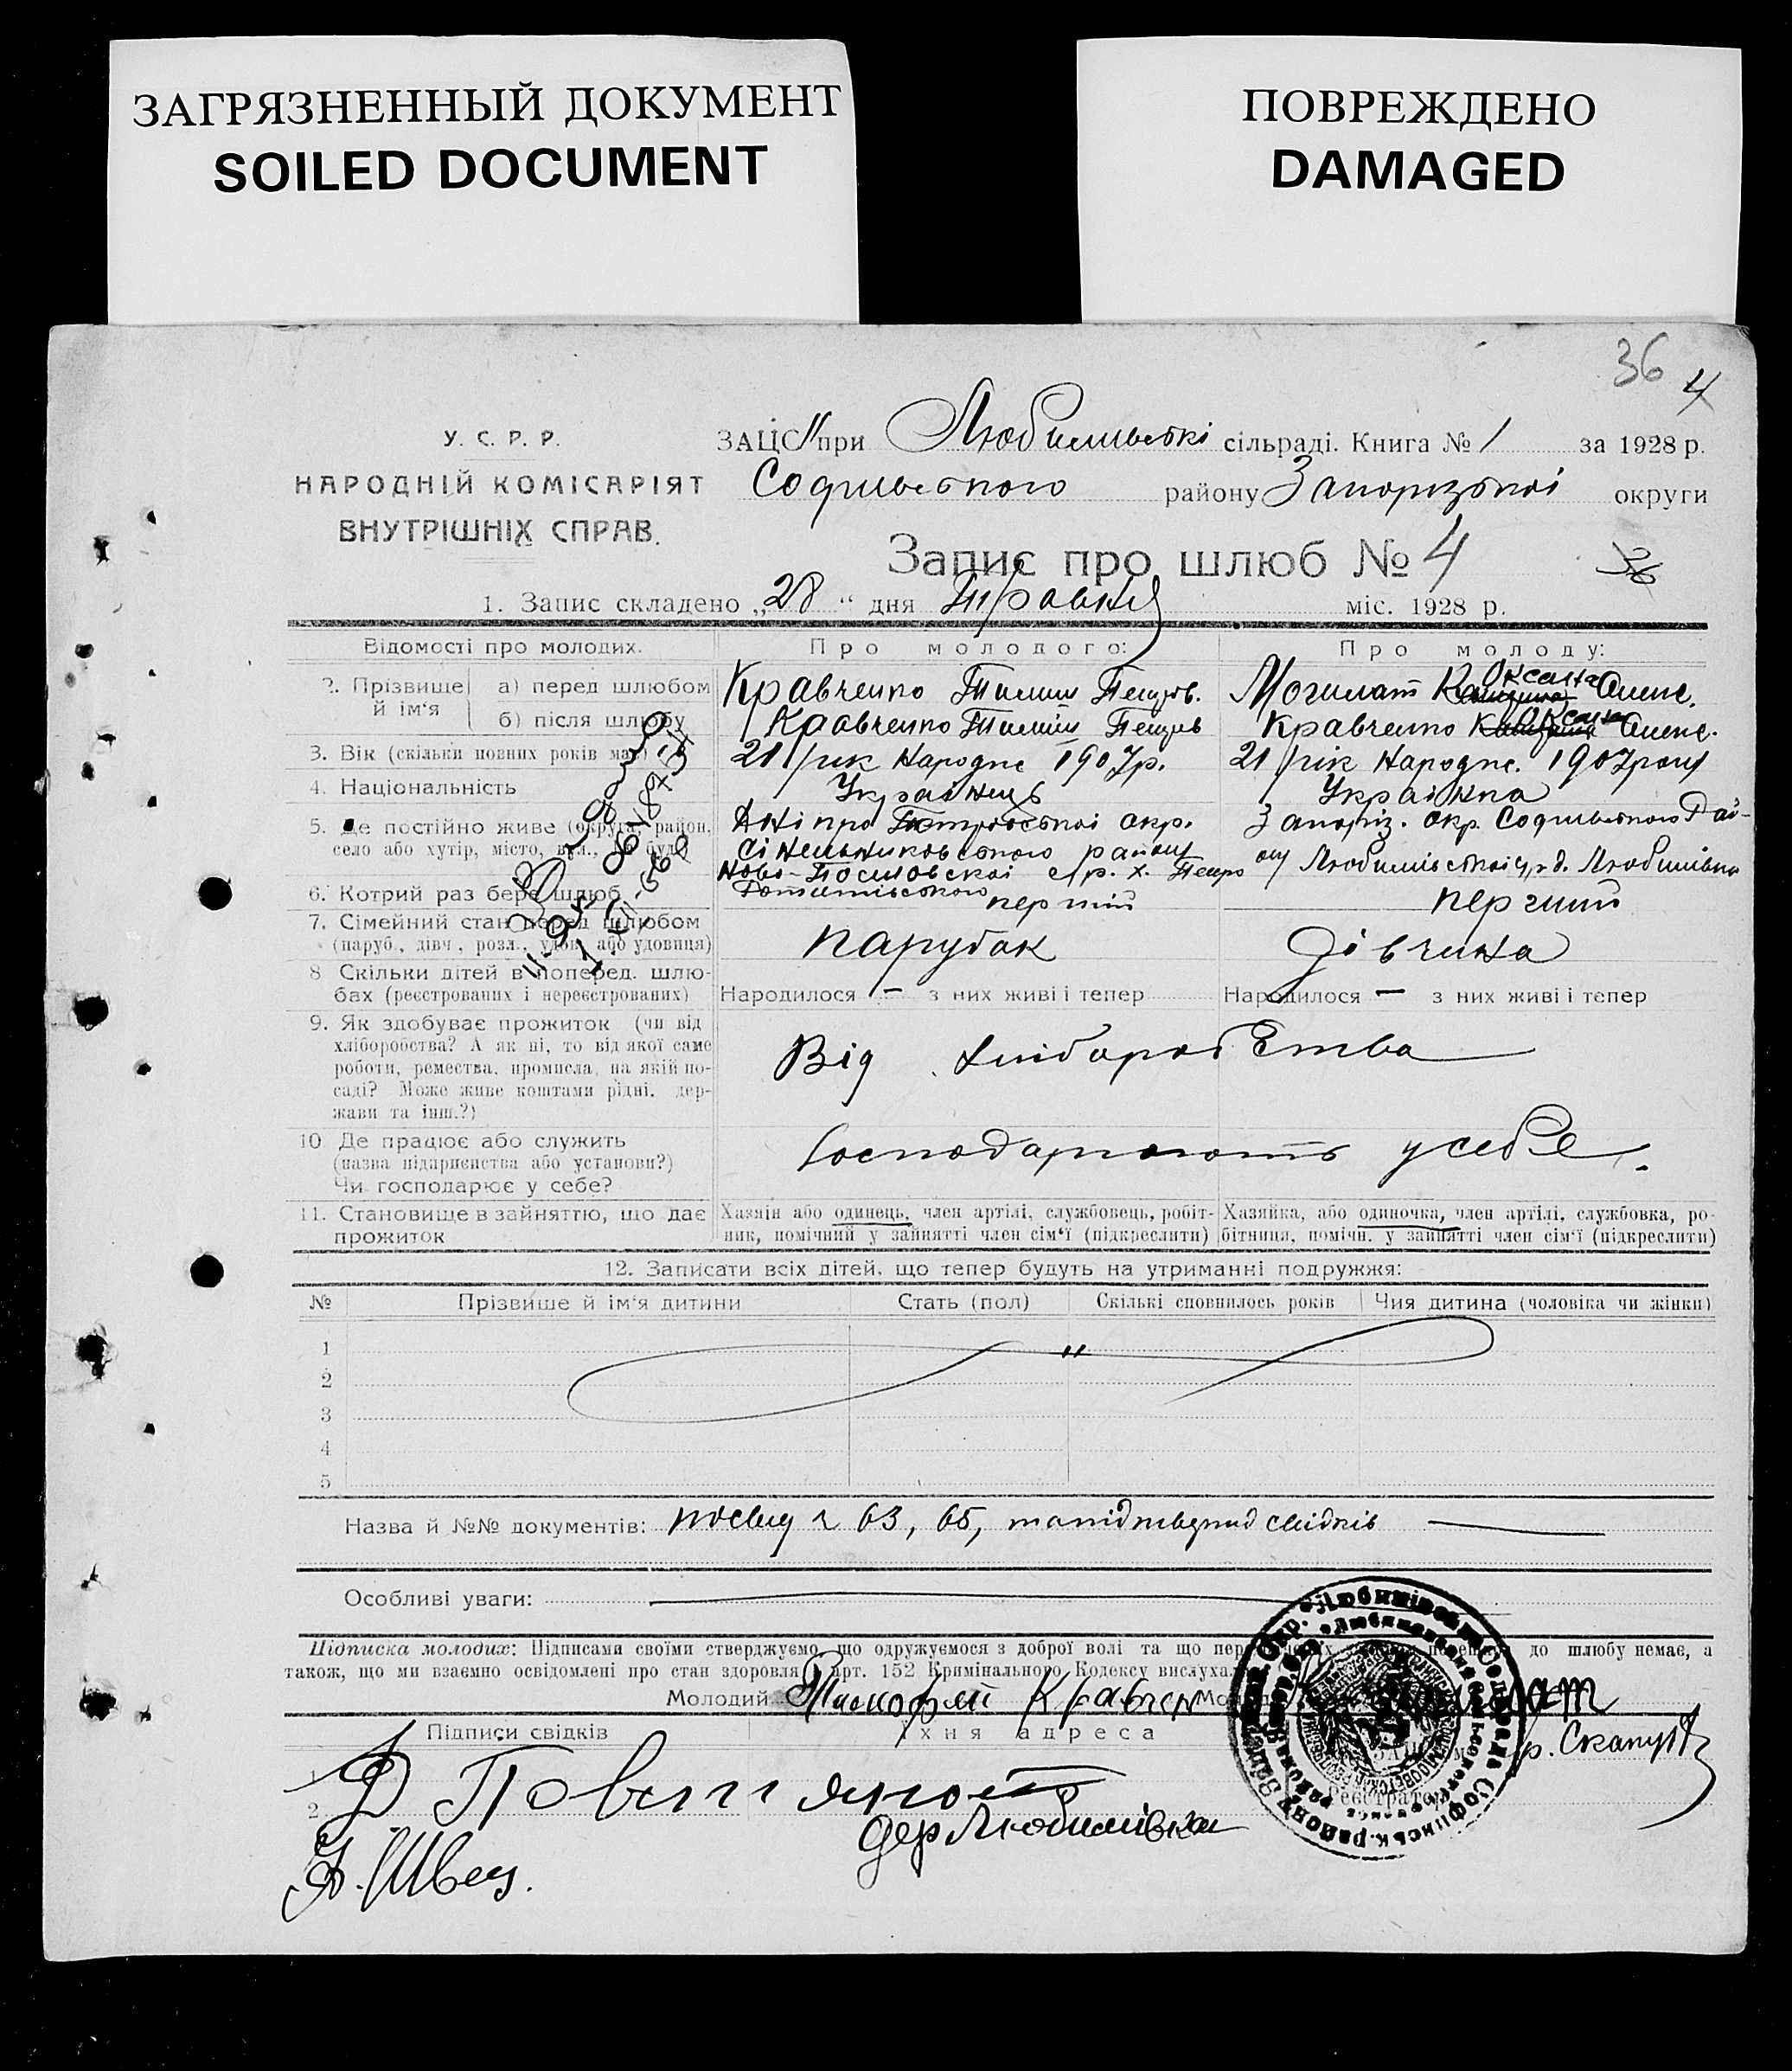 ЗАГРЯЗНЕННЫЙ ДОКУМЕНТ
SOILED DOCUMENT
ПОВРЕЖДЕНО
DAMAGED
36 4
У. С. Р. Р.
НАРОДНІЙ КОМІСАРІЯТ
ВНУТРІШНІХ СПРАВ.
ЗАЦС при Любимівські сільраді. Книга № 1 за 1928 р.
Софиївського району Запорізької округи
Запис про шлюб № 4
1. Запис складено „28“ дня Травня міс. 1928 р.
Відомості про молодих. Про молодого: Про молоду:
2. Прізвище й ім'я а) перед шлюбом Кравченко Тиміш Могилат Оксана
б) після шлюбу Кравченко Тиміш Кравченко Оксана
3. Вік (скільки повних років має) 21 рік Народне 1907р. 21 рік Народне. 1907року
4. Національність Українець Українка
5. Де постійно живе (округа, район, Дніпропетровської окр. Запоріз. окр. Софиївського Рай-
село або хутір, місто, вул., № буд.) Сінельниковського району ону Любимівської с/р д. Любимівка
Ново-Посиловскої с/р. х. Петро
6. Котрий раз бере шлюб перший перший
7. Сімейний стан перед шлюбом парубак дівчина
(паруб., дівч., розл., удов. або удовиця)
8 Скільки дітей в поперед. шлю-
бах (реєстрованих і нереєстрованих) Народилося — з них живі і тепер Народилося — з них живі і тепер
9. Як здобуває прожиток (чи від
хліборобства? А як ні, то від якої саме Від хліборобства
роботи, ремества, промисла, на якій по-
саді? Може живе коштами рідні, дер-
жави та інш.?)
10 Де працює або служить Господарюють у себе.
(назва підприємства або установи?)
Чи господарює у себе?
11. Становище в зайняттю, що дає Хазяїн або одинець, член артілі, службовець, робіт- Хазяйка, або одиночка, член артілі, службовка, ро-
прожиток ник, помічний у зайнятті член сім'ї (підкреслити) бітниця, помічн. у зайнятті член сім'ї (підкреслити)
12. Записати всіх дітей, що тепер будуть на утриманні подружжя:
№ Прізвище й ім'я дитини Стать (пол) Скількі сповнилось років Чия дитина (чоловіка чи жінки)
1
2
3
4
5
Назва й №№ документів: посвід 63, 65, свідків
Особливі уваги:
Підписка молодих: Підписами своїми стверджуємо, що одружуємося з доброї волі та що до шлюбу немає, а
також, що ми взаємно освідомлені про стан здоровля арт. 152 Кримінального Кодексу вислуха
Молодий Тимофий Кравчен
Підписи свідків Їхня адреса
1
2
дер Любимівка
Я. Швец.